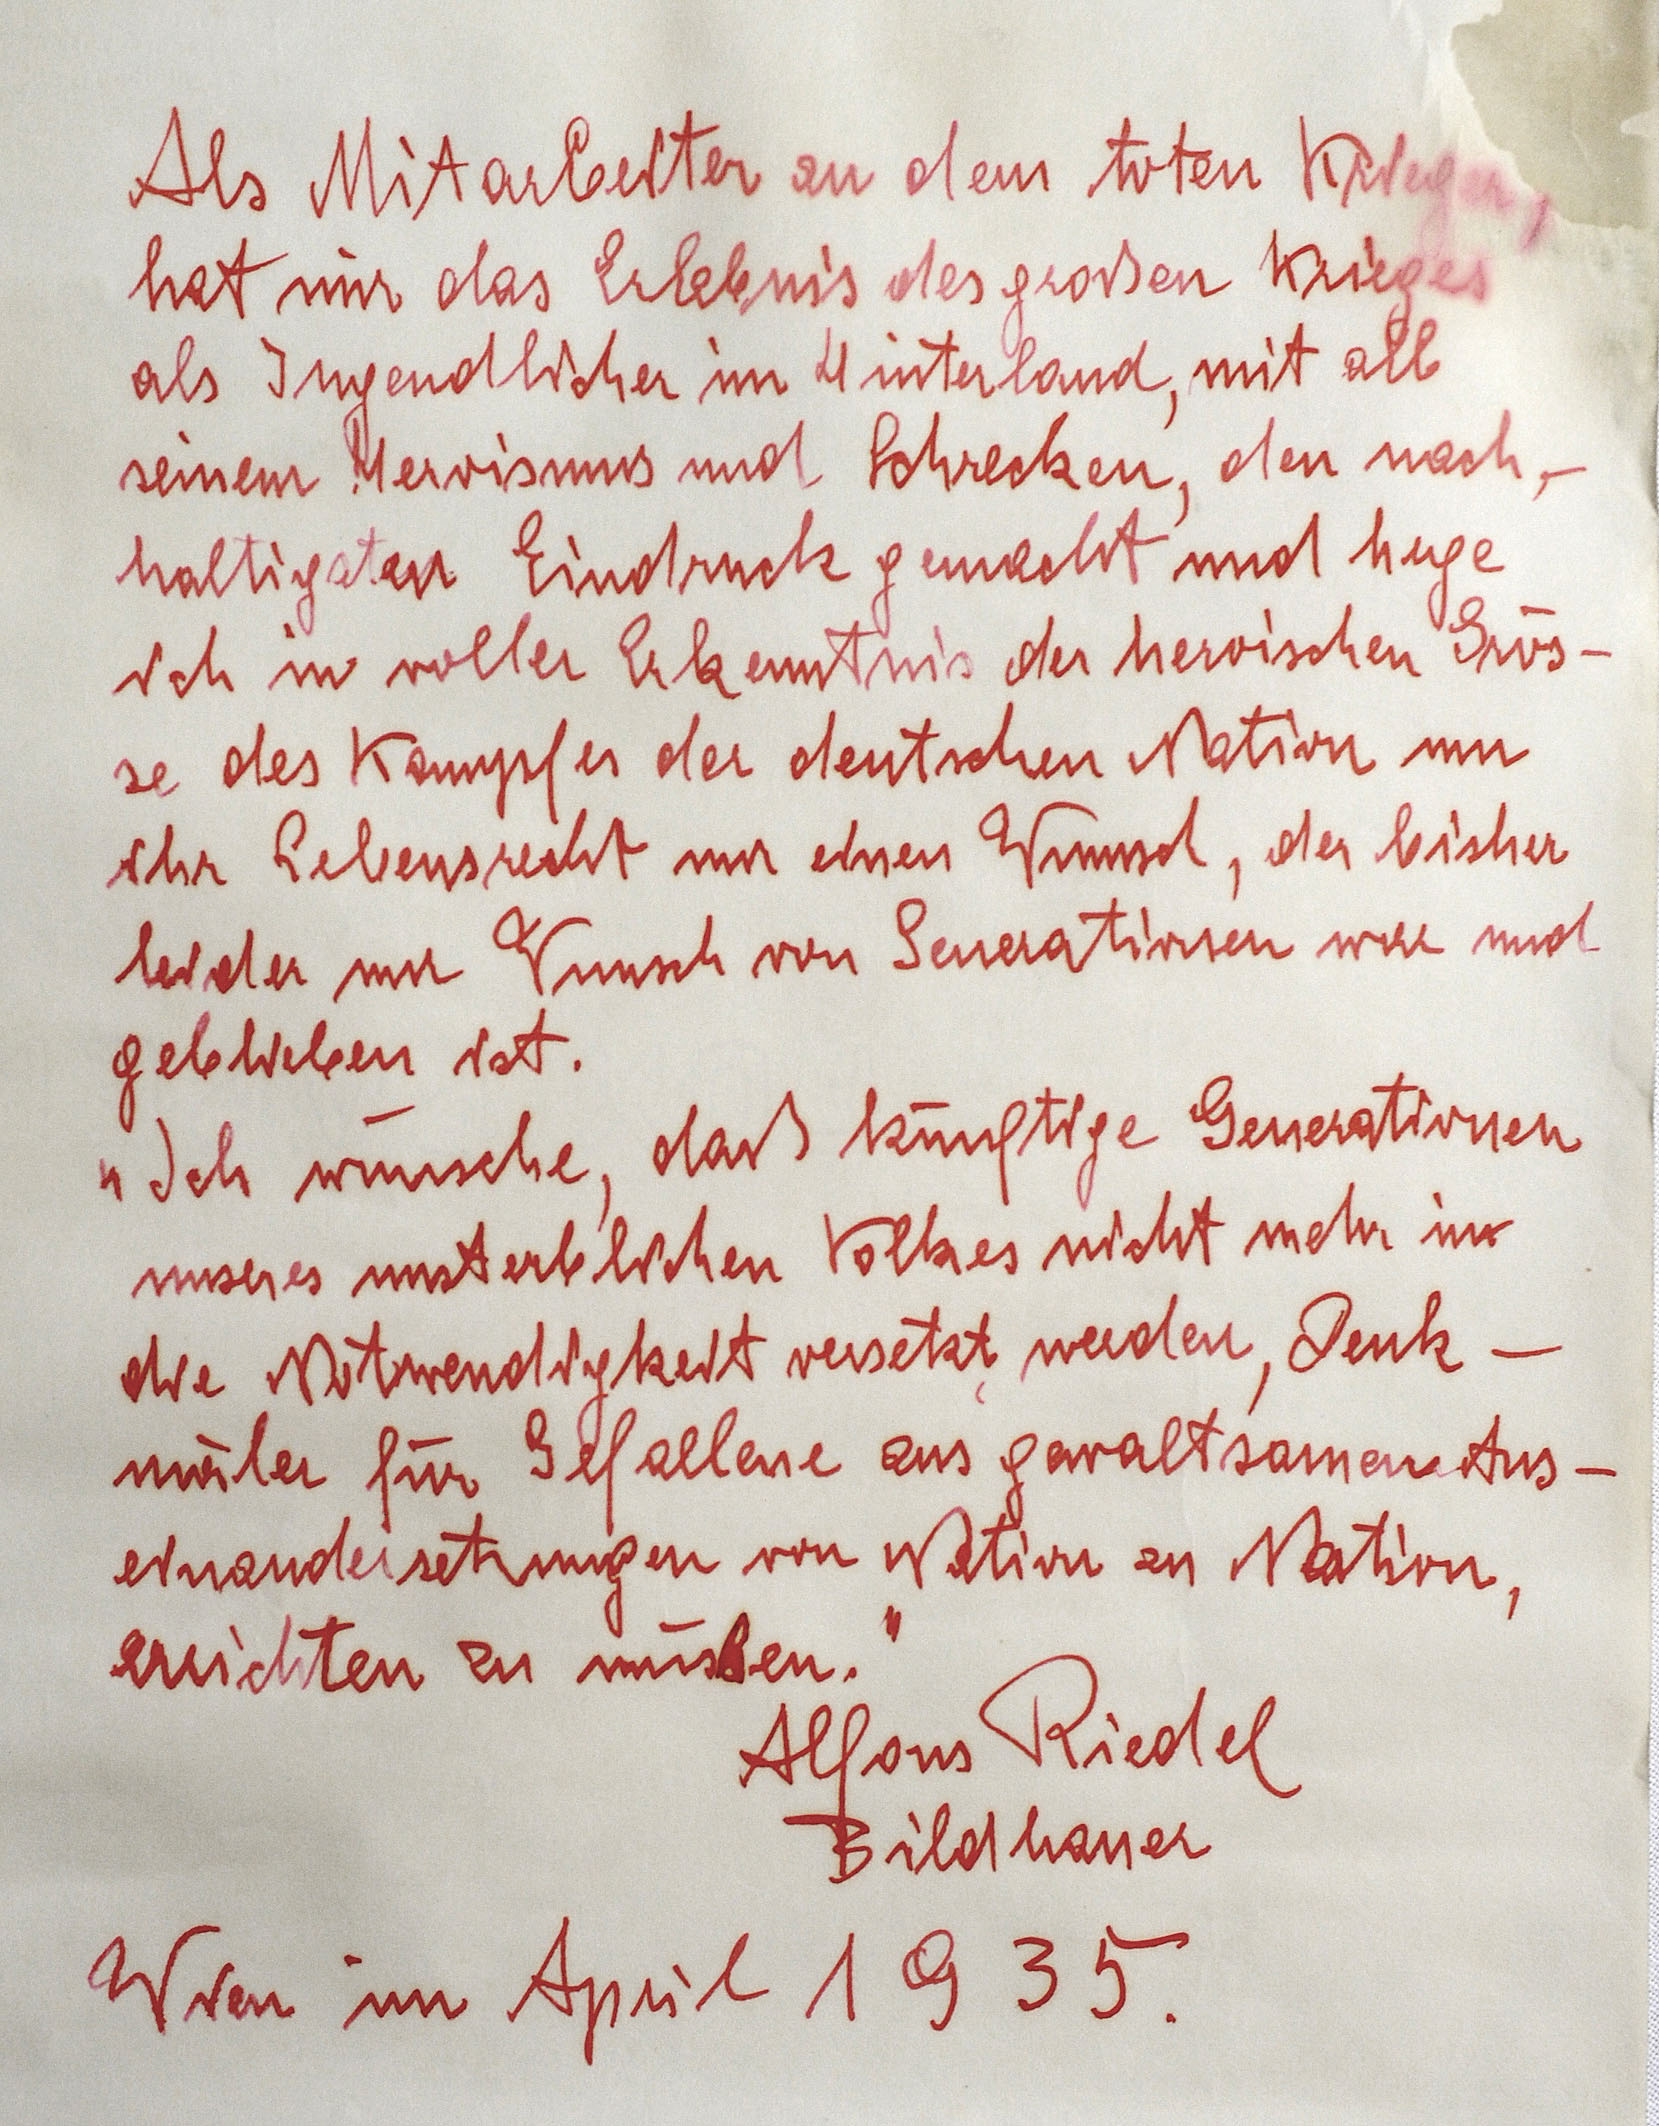 Als Mitarbeiter an dem toten Krieger,
hat mir das Erlebnis des großen Krieges
als Jugendlicher im Hinterland, mit all
seinem Heroismus und Schrecken, den nach-
haltigsten Eindruck gemacht und hege
ich in voller Erkenntnis der heroischen Grös-
se des Kampfes der deutschen Nation um
ihr Lebensrecht nur einen Wunsch, der bisher
leider nur Wunsch von Generationen war und
geblieben ist.
"Ich wünsche, daß künftige Generationen
unseres unsterblichen Volkes nicht mehr in
die Notwendigkeit versetzt werden, Denk-
mäler für Gefallene aus gewaltsamen Aus-
einandersetzungen von Nation zu Nation,
errichten zu müssen."
Alfons Riedel
Bildhauer
Wien im April 1935.